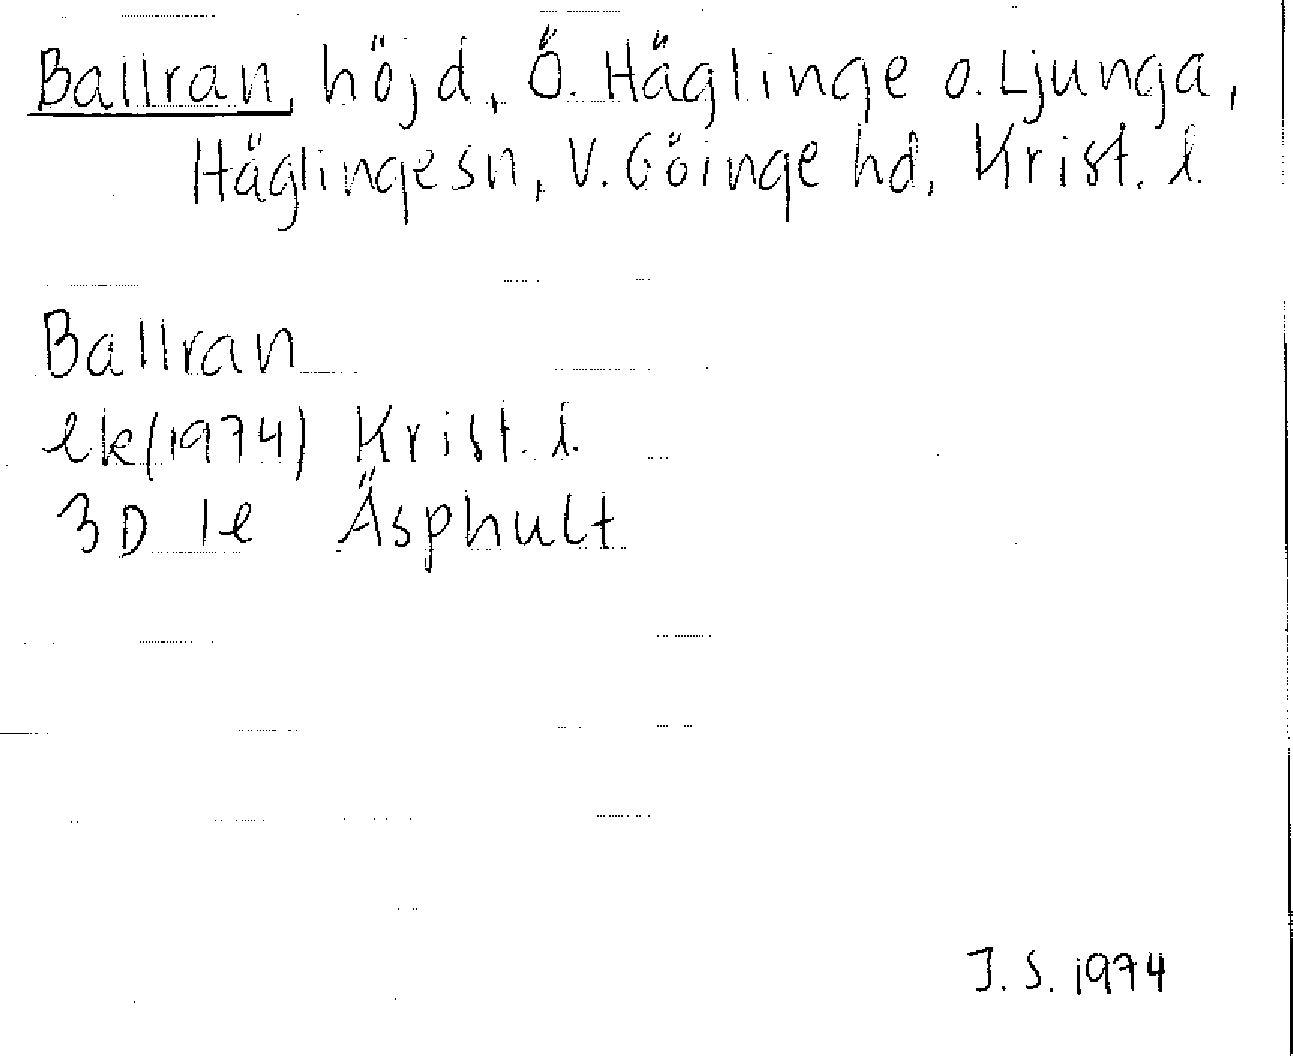 Ballran, höjd, Ö. Häglinge o. Ljunga,
Häglinge sn, V. Göinge hd, Krist. l.
Ballran
ek (1974) Krist. l.
3D 1e Äsphult
J. S. 1974